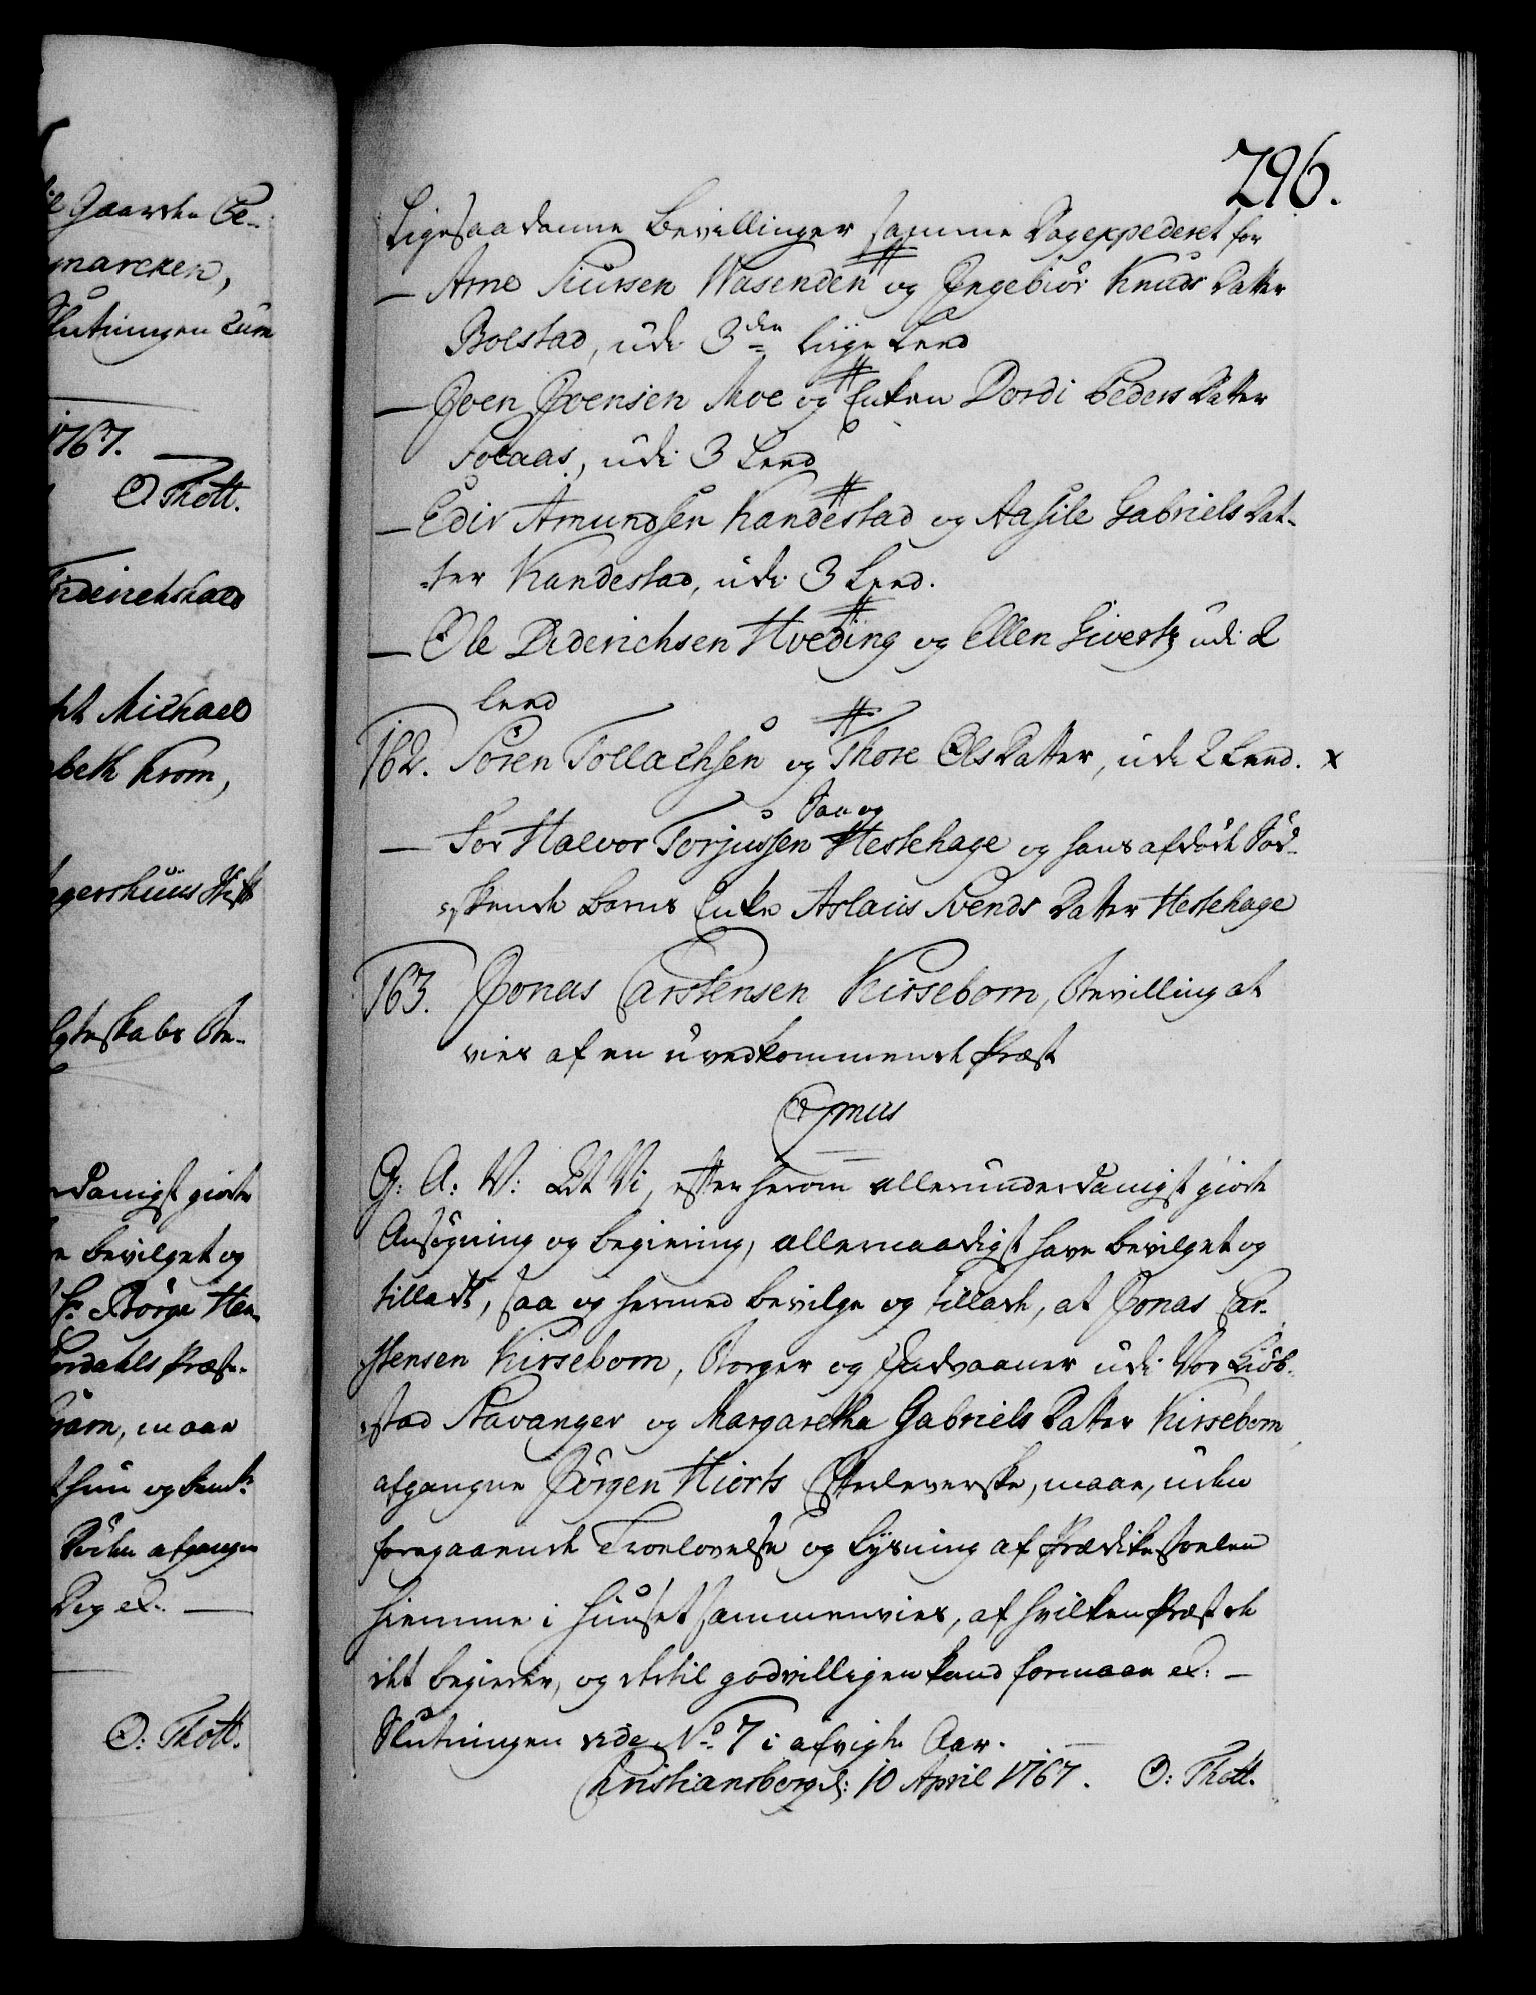 296.
Ligesaadanne Bevillinger samme Dag expederet for
— Arne Siursen Wasenden og Ingebiør Knuds Datter
Bolstad, udi 3den liige Leed
— Joen Joensen Moe og Enken Dordi Peders Datter
Solaas, udi 3 Leed
— Edis Amundsen Kandestad og Aasile Gabriels Dat-
-ter Kandestad, udi 3 Leed.
— Ole Diderichsen Hveding og Ellen Giverts udi 2
Leed
162. Søren Tollachsen og Thore Ols Datter, udi 2 Leed. x
Saa og
— For Halvor Torjussen Hestehage og hans afdøde Sød-
-skende Barns Enke Aslaus Svends Datter Hestehage
163. Jonas Carstensen Kirsebom, Bevilling at
vies af en uvedkommende Præst
Cgmus
G: A: V: At Vi, efter herom allerunderdanigst giorte
Ansøgning og Begiering, allernaadigst have bevilget og
tilladt, saa og hermed bevilge og tillade, at Jonas Car-
stensen Kirsebom, Borger og Indvaaner udi Vor Kiøb-
-stad Stavanger og Margaretha Gabriels Datter Kirsebom
afgangne Jørgen Hiorts Efterleverske, maae, uden
foregaaende Troelovelse og Lysning af Prædikestoelen
hiemme i Huuset sammenvies, af hvilken Præst de
det begierer, og dertil godvilligen kand formaae etc: —
Slutningen vide No 7 i afvigte Aar.
Christiansborg d: 10 April 1767. O: Thott.
til Gaarden Be-
gmarcken,
Slutningen som
1767.
O Thott.
Friderichshald
Michael
beth Krom,
Aggershuus Stift
Egteskabs Be-
-danigst giorte
bevilget og
Hr. Børge Hen-
Præste-
maae
hun og hendes
Døden afgangen
Dag etc. —
O: Thott.